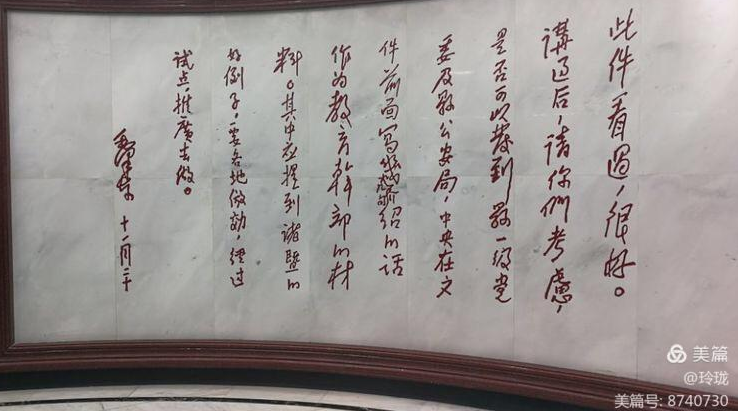 此件看过，很好。
講过后，請你們考慮，
是否可以發到縣一级党
委及縣公安局，中央在文
件前面写幾句介绍的话
作为教育幹部的材
料。其中应提到诸暨的
好例子，要各地做効，經过
试点，推廣去做。
毛泽东 十一月二十
美篇
@玲珑
美篇号: 8740730